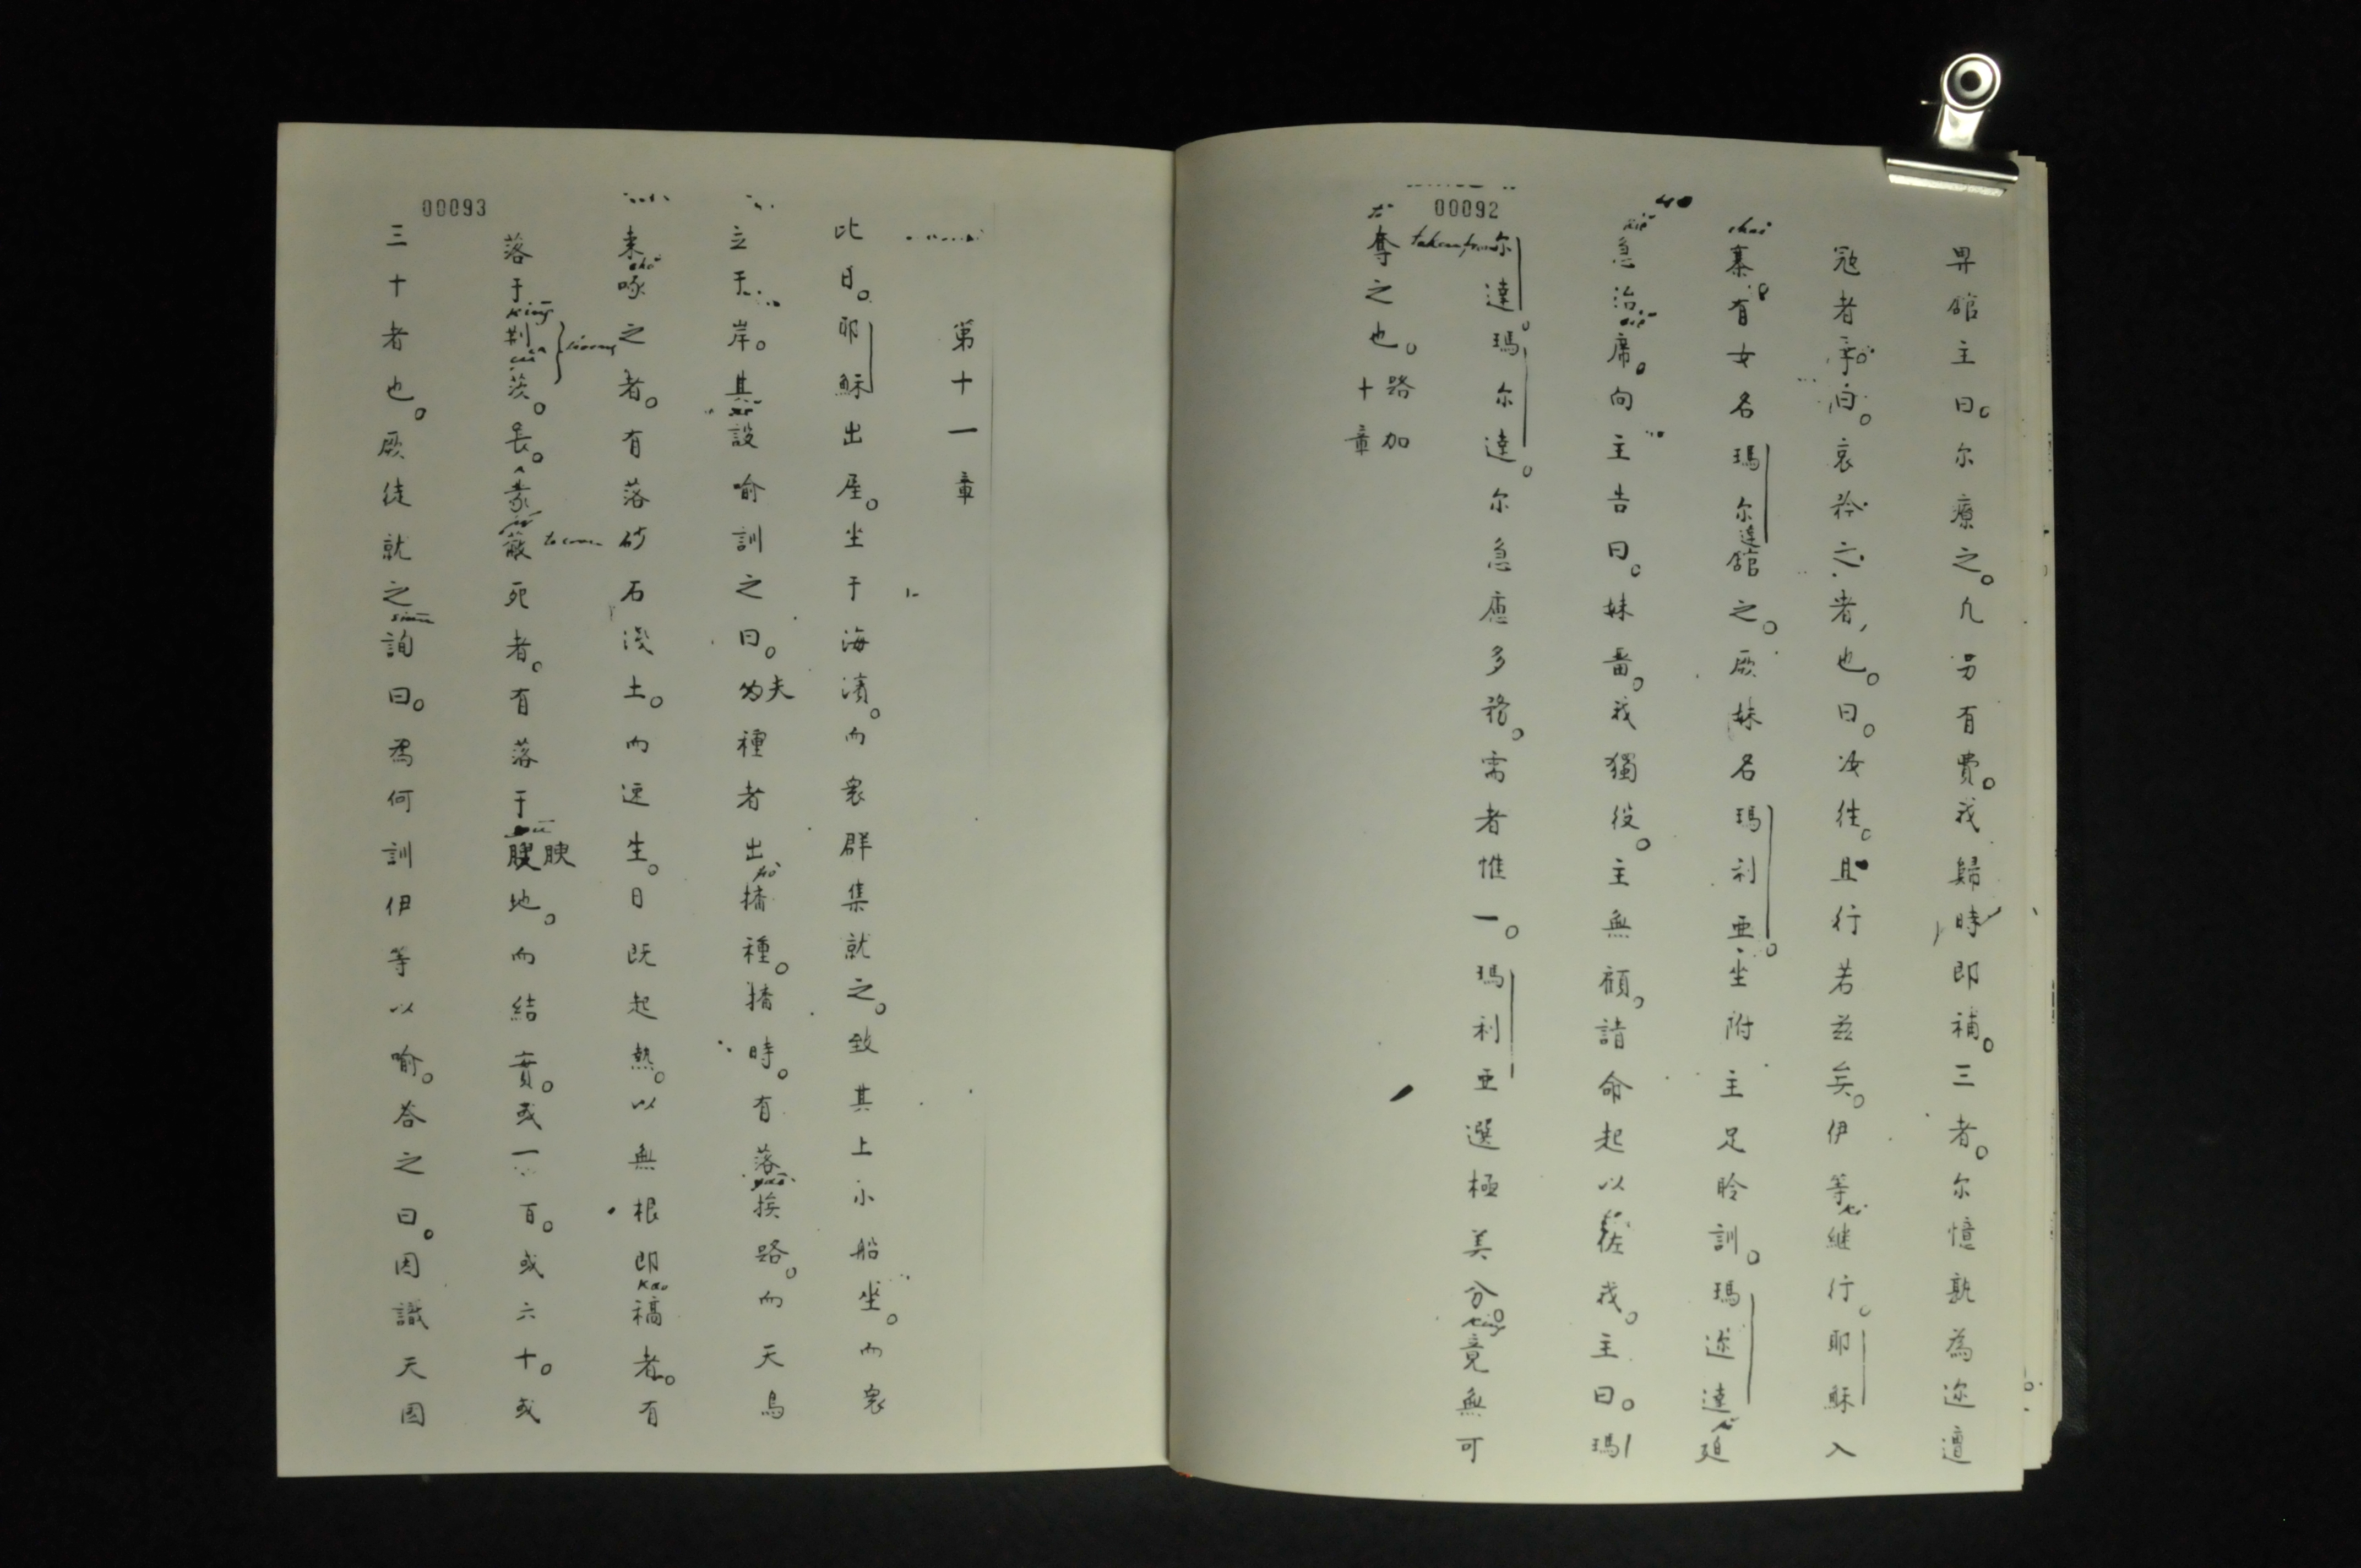 00092
畀舘主曰。尔療之。凢另有費。我歸時即補。三者。尔憶孰為迩遭
宼者乎。白。哀矜之者也。曰。汝徃。且行若兹矣。伊等継行。耶穌入
寨。有女名瑪尔達舘之。厥妹名瑪利亜。坐附主足聆訓。瑪迩達廹
急治席。向主告曰。妹畱。我獨役。主無顧。請命起以佐我。主曰。瑪
尔達瑪尔達。尔急慮多務。需者惟一。瑪利亜選極美分。竟無可
奪之也。路加十章
00093
第十一章
比日。耶穌出屋。坐于海濱。而衆群集就之。致其上小船坐。而衆
立于岸。其設喻訓之曰。夫為種者出播種。播時。有落挨路。而天鳥
来啄之者。有落砂石淺土。而速生。日既起熱。以無根即稿者。有
落于荆茨。長。蒙蔽死者。有落于腴地。而結實。或一百。或六十。或
三十者也。厥徒就之詢曰。爲何訓伊等以喻。答之曰。因識天國